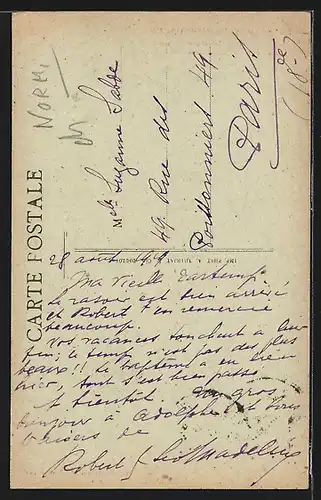 CARTE POSTALE
Melle Suzanne
49 Rue des
Poissonniers 49
Paris
(18e)
28 août
Ma vieille
Le rasoir est bien arrivé
et Robert t'en remercie
beaucoup.
Vos vacances touchent à leur
fin; le temps n'est pas des plus
beaux!! Le baptême a eu lieu
hier, tout s'est bien passé
A bientôt. Un gros
bonjour à Adolphe et bons
baisers de
Robert